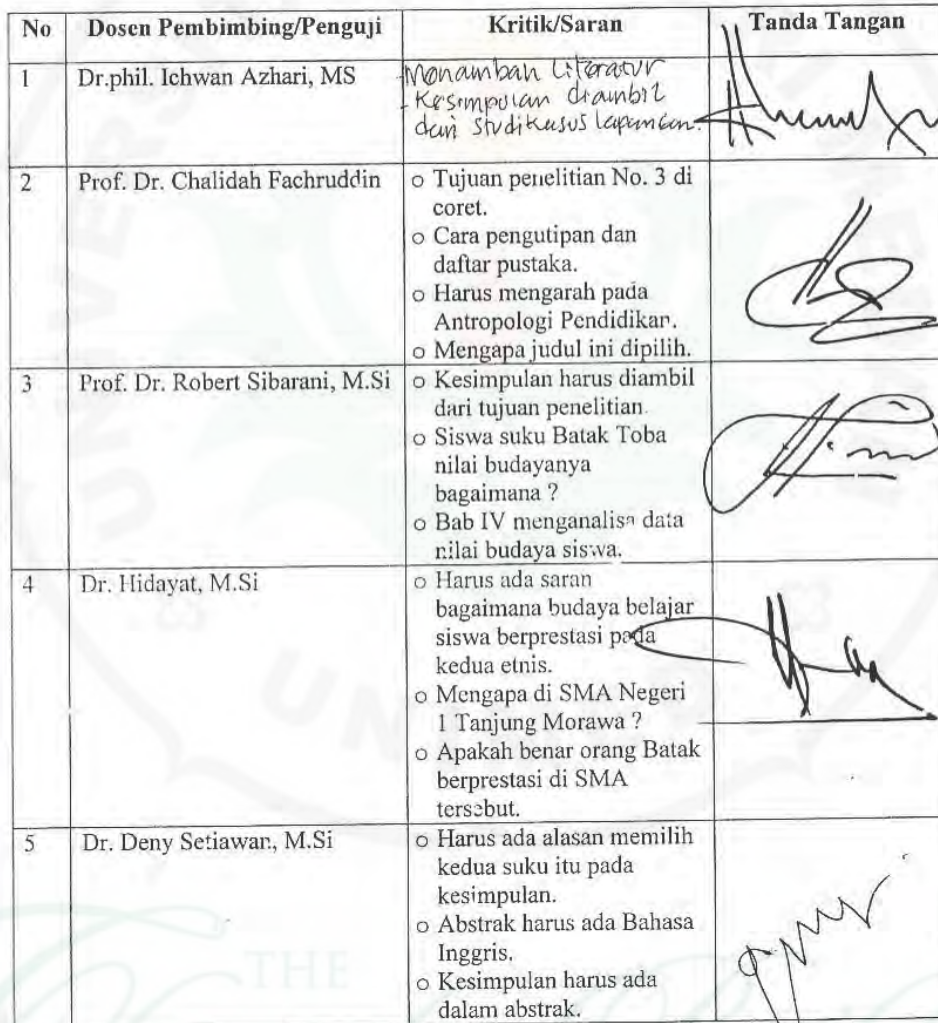 No Dosen Pembimbing/Penguji Kritik/Saran Tanda Tangan
1 Dr.phil. Ichwan Azhari, MS
Menambah Literatur
- Kesimpulan diambil
dari studi kasus lapangan.
2 Prof. Dr. Chalidah Fachruddin
o Tujuan penelitian No. 3 di
coret.
o Cara pengutipan dan
daftar pustaka.
o Harus mengarah pada
Antropologi Pendidikan.
o Mengapa judul ini dipilih.
3 Prof. Dr. Robert Sibarani, M.Si
o Kesimpulan harus diambil
dari tujuan penelitian.
o Siswa suku Batak Toba
nilai budayanya
bagaimana ?
o Bab IV menganalisa data
nilai budaya siswa.
4 Dr. Hidayat, M.Si
o Harus ada saran
bagaimana budaya belajar
siswa berprestasi pada
kedua etnis.
o Mengapa di SMA Negeri
1 Tanjung Morawa ?
o Apakah benar orang Batak
berprestasi di SMA
tersebut.
5 Dr. Deny Setiawan, M.Si
o Harus ada alasan memilih
kedua suku itu pada
kesimpulan.
o Abstrak harus ada Bahasa
Inggris.
o Kesimpulan harus ada
dalam abstrak.
THE